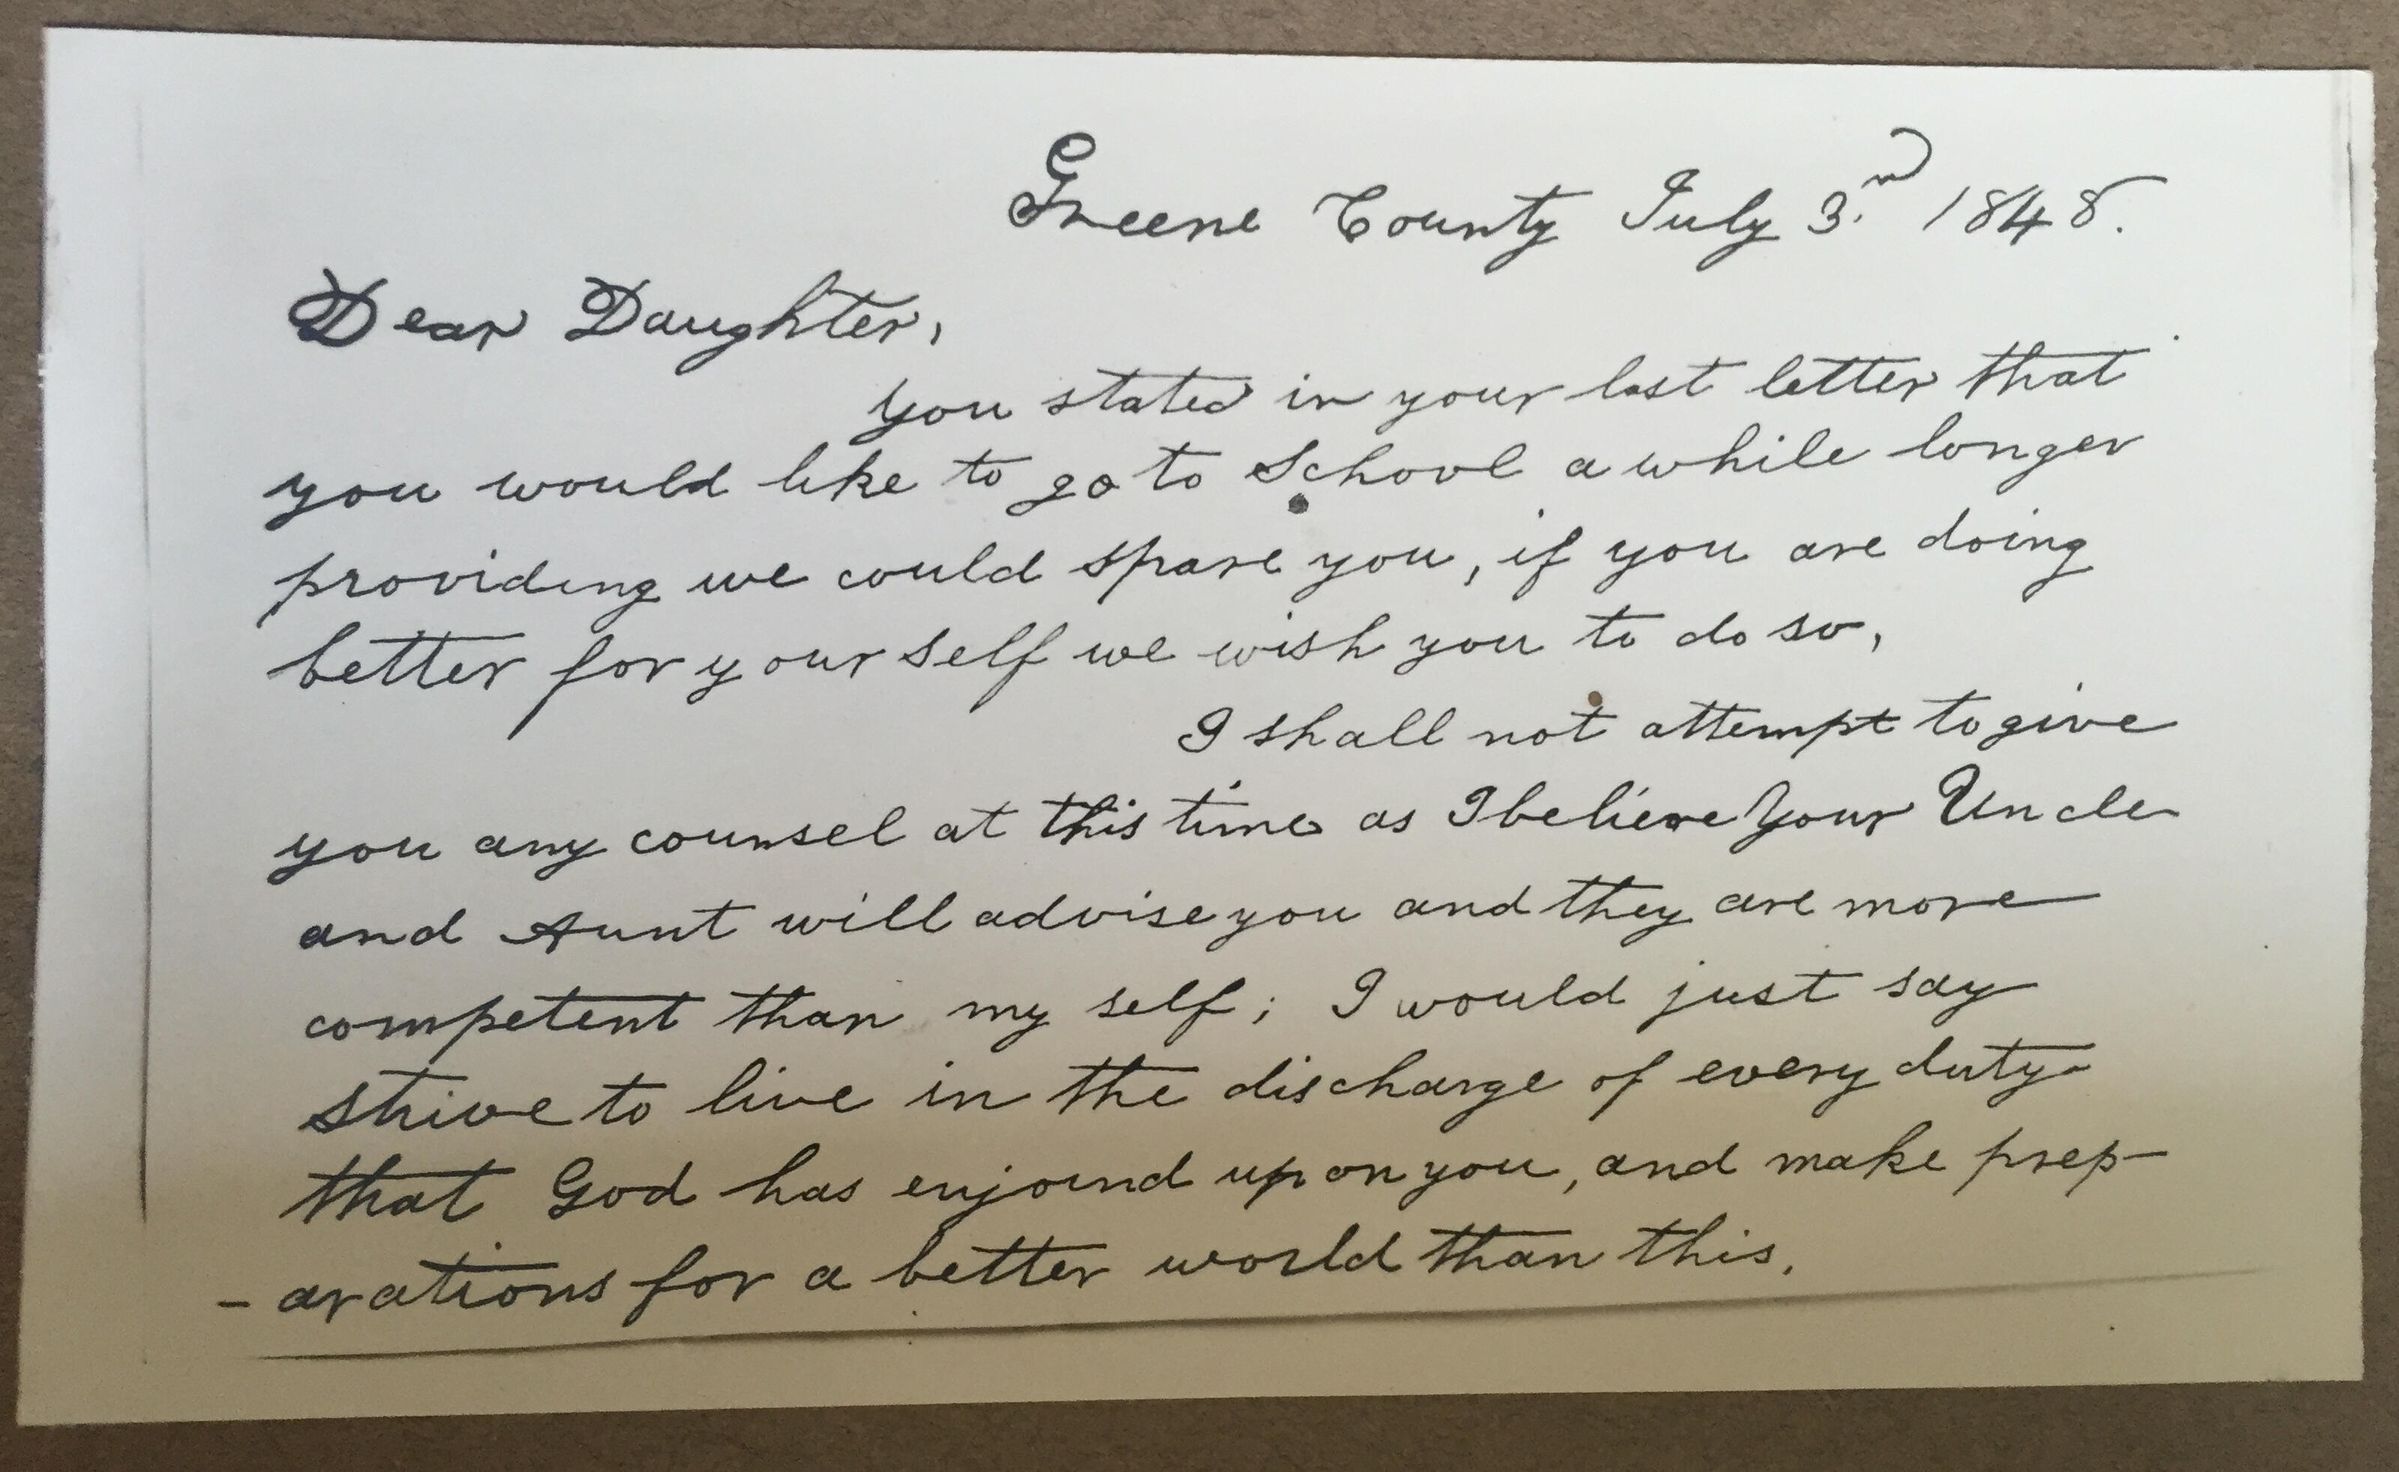 Greene County July 3.rd 1848.
Dear Daughter,
you stated in your last letter that
you would like to go to School a while longer
providing we could spare you, if you are doing
better for your self we wish you to do so,
I shall not attempt to give
you any counsel at this time as I believe Your Uncle
and Aunt will advise you and they are more
competent than my self; I would just say
strive to live in the discharge of every duty
that God has enjoind upon you, and make prep-
-arations for a better world than this.